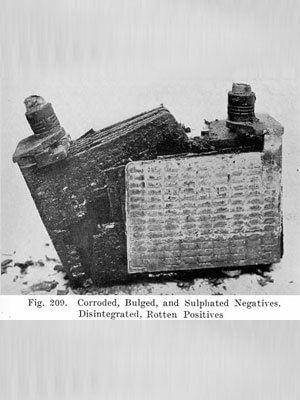 Fig. 209. Corroded, Bulged, and Sulphated Negatives.
Disintegrated, Rotten Positives